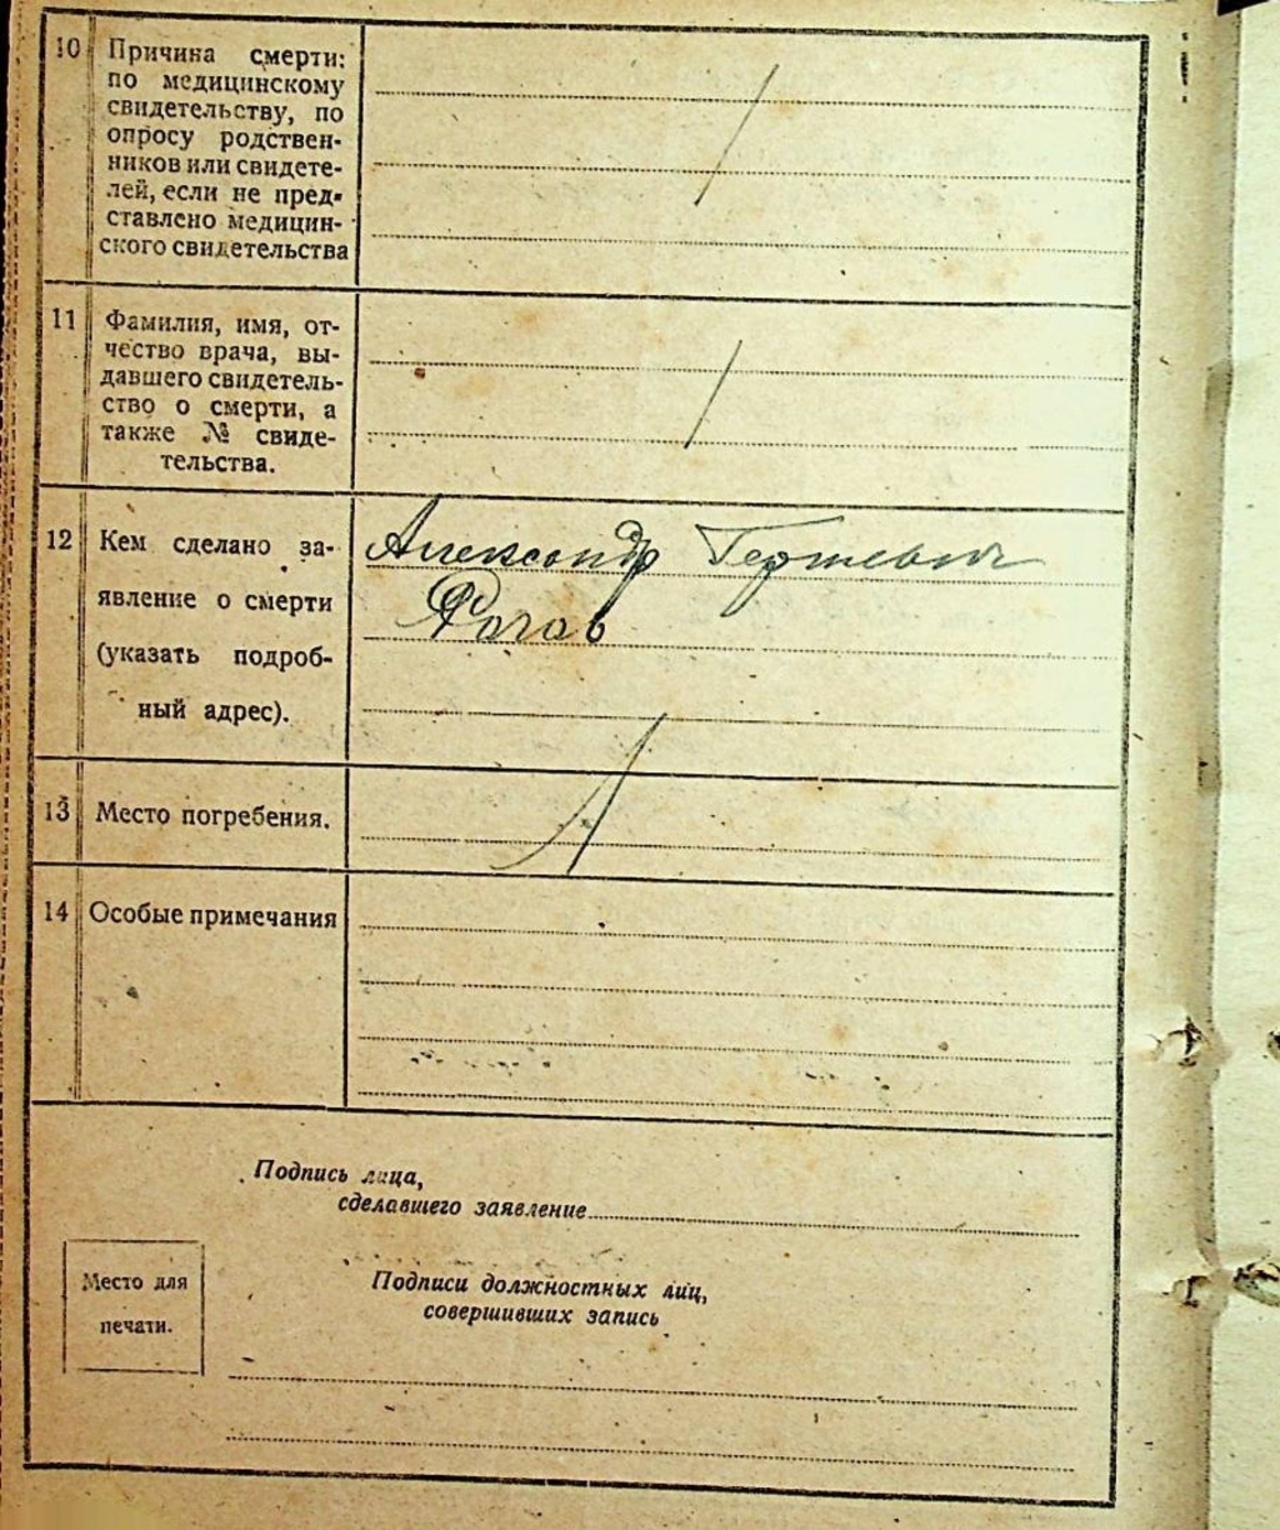 10 Причина смерти:
по медицинскому
свидетельству, по
опросу родствен-
ников или свидете-
лей, если не пред-
ставлено медицин-
ского свидетельства
11 Фамилия, имя, от-
чество врача, вы-
давшего свидетель-
ство о смерти, а
также № свиде-
тельства.
12 Кем сделано за-
явление о смерти
(указать подроб-
ный адрес).
Александр
Рогов
13 Место погребения.
14 Особые примечания
Подпись лица,
сделавшего заявление
Место для
печати.
Подписи должностных лиц,
совершивших запись